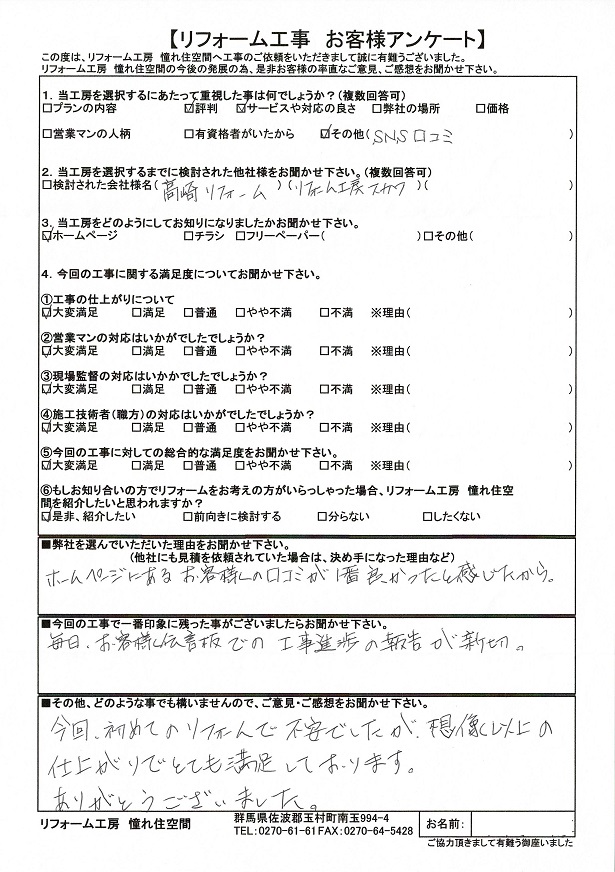 【リフォーム工事 お客様アンケート】
この度は、リフォーム工房 憧れ住空間へ工事のご依頼をいただきまして誠に有難うございました。
リフォーム工房 憧れ住空間の今後の発展の為、是非お客様の率直なご意見、ご感想をお聞かせ下さい。
1. 当工房を選択するにあたって重視した事は何でしょうか？(複数回答可)
□プランの内容 ☑評判 ☑サービスや対応の良さ □弊社の場所 □価格
□営業マンの人柄 □有資格者がいたから ☑その他(SNS口コミ )
2. 当工房を選択するまでに検討された他社様をお聞かせ下さい。(複数回答可)
□検討された会社様名(高崎リフォーム )(リフォーム工房アカツ )( )
3. 当工房をどのようにしてお知りになりましたかお聞かせ下さい。
☑ホームページ □チラシ □フリーペーパー( )□その他( )
4. 今回の工事に関する満足度についてお聞かせ下さい。
①工事の仕上がりについて
☑大変満足 □満足 □普通 □やや不満 □不満 ※理由( )
②営業マンの対応はいかがでしたでしょうか？
☑大変満足 □満足 □普通 □やや不満 □不満 ※理由( )
③現場監督の対応はいかかでしたでしょうか？
☑大変満足 □満足 □普通 □やや不満 □不満 ※理由( )
④施工技術者(職方)の対応はいかがでしたでしょうか？
☑大変満足 □満足 □普通 □やや不満 □不満 ※理由( )
⑤今回の工事に対しての総合的な満足度をお聞かせ下さい。
☑大変満足 □満足 □普通 □やや不満 □不満 ※理由( )
⑥もしお知り合いの方でリフォームをお考えの方がいらっしゃった場合、リフォーム工房 憧れ住空
間を紹介したいと思われますか？
☑是非、紹介したい □前向きに検討する □分らない □したくない
■弊社を選んでいただいた理由をお聞かせ下さい。
(他社にも見積を依頼されていた場合は、決め手になった理由など)
ホームページにあるお客様の口コミが1番良かったと感じたから。
■今回の工事で一番印象に残った事がございましたらお聞かせ下さい。
毎日、お客様伝言板での工事進捗の報告が新切。
■その他、どのような事でも構いませんので、ご意見・ご感想をお聞かせ下さい。
今回、初めてのリフォームで不安でしたが、想像以上の
仕上がりでとても満足しております。
ありがとうございました。
リフォーム工房 憧れ住空間
群馬県佐波郡玉村町南玉994-4
TEL:0270-61-61 FAX:0270-64-5428
お名前:
ご協力頂きまして有難う御座いました